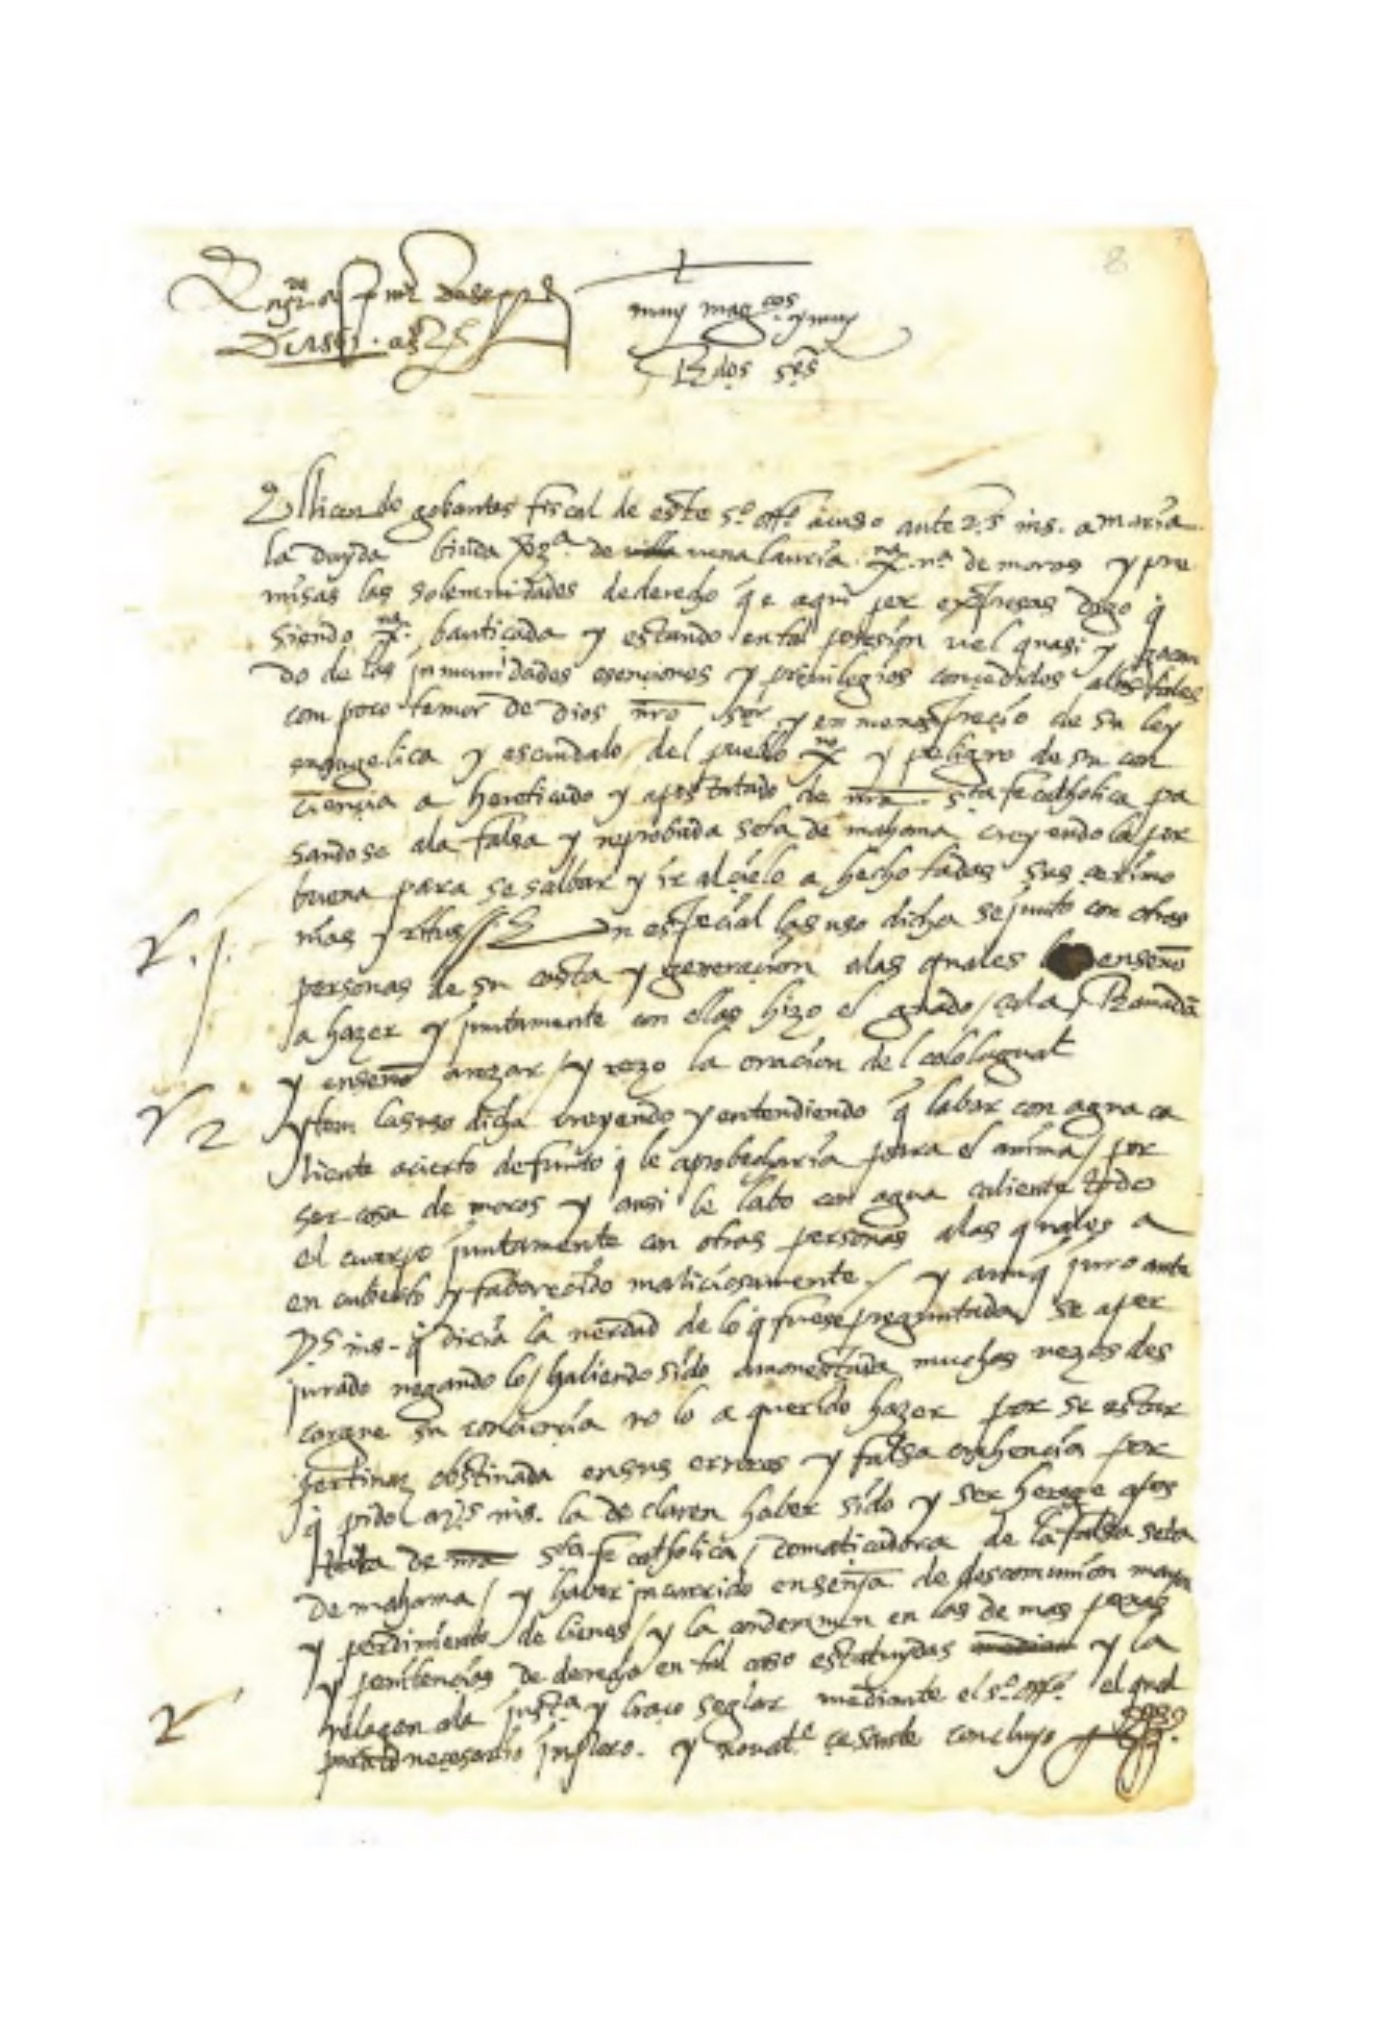 8
muy mag.cos y muy
Rdos sres
El licendo gobantes fiscal de este so offo acuso ante v.s ins. a maria
la duyda biuda vza de uena lauria xna na de moros y pre
misas las solemnidades de derecho que aqui por expresas digo q
siendo xna bauticada y estando en tal posesion uel quasi y gozan
do de las inmunidades esenciones y preuilegios concedidos a los tales
com poco temor de dios nro sor y en menosprecio de su ley
euangelica y escandalo del pueblo xno y peligro de su con
ciencia a hereticado y apostatado de nra sta fe catholica pa
sandose a la falsa y reprobada seta de mahoma creyendo la por
buena para se salbar y ir al cielo a hecho todas sus cerimo
nias y ritus En especial la suso dicha se junto con otras
personas de su casta y generacion a las quales enseño
a hazer y juntamente con ellas hizo el guado / cala / Ramadan
y enseño arezar / y rezo la oracion del colo lagual
2 ytem la suso dicha creyendo y entendiendo q labar con agua ca
liente acierto defunto q le aprobecharia para el anima / por
ser cosa de moros y ansi le labo con agua caliente todo
el cuerpo juntamente con otras personas a las quales a
encubierto y faborecido maliciosamente / y aunq juro ante
v.s ins. q diria la uerdad de lo q fuese preguntada se a per
jurado negando lo / habiendo sido amonestada muchas uezes des
cargue su conciencia no lo a querido hazer por se estar
pertinaz obstinada en sus errores y falsa crehencia por
q pido a v.s ins. la declaren haber sido y ser herege apos
tata de nra sta fe catholica / domaticadora de la falsa seta
de mahoma / y haber incurrido en sena de descomunion mayor
y perdimiento de bienes / y la condennen en las demas penas
y penitencias de derecho en tal caso estatuydas y la
relagen a la justa y braço seglar mediante el so offo el qual
necesario inploro. y nouate cesante concluyo